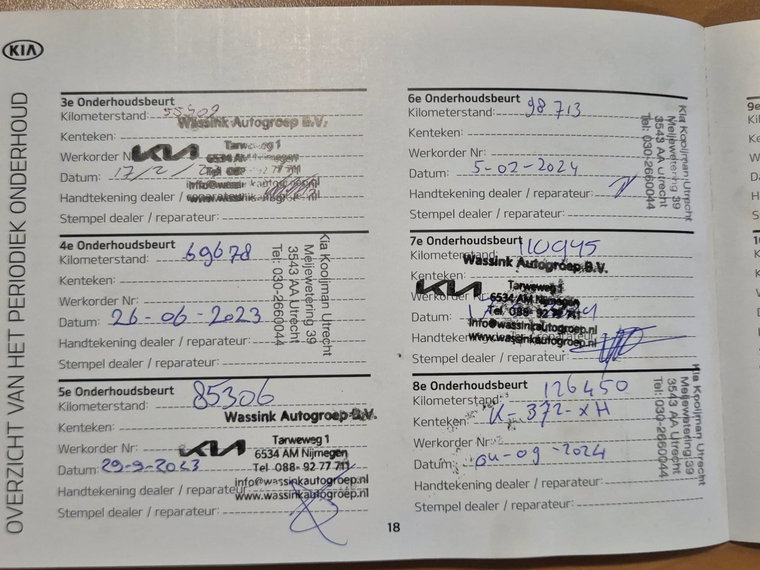 KIA
OVERZICHT VAN HET PERIODIEK ONDERHOUD
3e Onderhoudsbeurt
Kilometerstand:
Wassink Autogroep B.V.
Kenteken:
Tarweweg 1
Werkorder N
KIA
6534 AM Nijmegen
Datum: 17/2/
Handtekening dealer / reparateur:
Stempel dealer / reparateur:
4e Onderhoudsbeurt
Kilometerstand: 69678
Kenteken:
Werkorder Nr:
Datum: 26-06-2023
Handtekening dealer / reparateur:
Stempel dealer / reparateur:
Kia Kooijman Utrecht
Meijewetering 39
3543 AA Utrecht
Tel: 030-2660044
5e Onderhoudsbeurt
Kilometerstand: 85306
Wassink Autogroep B.V.
Kenteken:
Tarweweg 1
Werkorder Nr:
KIA
6534 AM Nijmegen
Datum: 29-9-2023
Tel 088- 92 77 711
info@wassinkautogroep.nl
Handtekening dealer / reparateur:
www.wassinkautogroep.nl
Stempel dealer / reparateur:
6e Onderhoudsbeurt
Kilometerstand: 98713
Kenteken:
Werkorder Nr:
Datum: 5-02-2024
Handtekening dealer / reparateur:
Stempel dealer / reparateur:
Kia Kooijman Utrecht
Meijewetering 39
3543 AA Utrecht
Tel: 030-2660044
7e Onderhoudsbeurt
Kilometerstand: 110945
Wassink Autogroep B.V.
Kenteken:
Tarweweg 1
KIA
Werkorder Nr:
6534 AM Nijmegen
Tel 088- 92 77 711
Datum:
info@wassinkautogroep.nl
Handtekening dealer / reparateur:
www.wassinkautogroep.nl
Stempel dealer / reparateur:
8e Onderhoudsbeurt
Kilometerstand: 126450
Kenteken: K-372-XH
Werkorder Nr:
Datum: 04-09-2024
Handtekening dealer / reparateur:
Stempel dealer / reparateur:
Kia Kooijman Utrecht
Meijewetering 39
3543 AA Utrecht
Tel: 030-2660044
18
9e